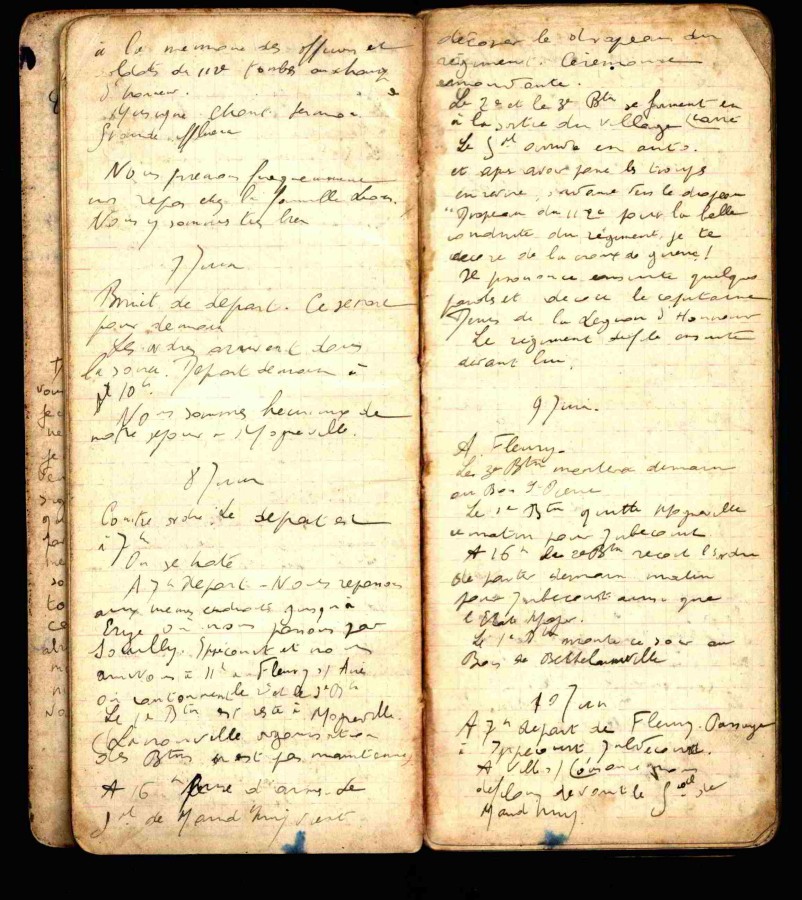 à la memoire des officiers et
soldats du 112e tombés au champ
d'honneur.
Musique Chant sermon.
Grande affluence
Nous prenons frequemment
nos repas chez la famille
Nous y sommes très bien
7 Juin
Bruit de depart. Ce serait
pour demain
Les ordres arrivent dans
la soirée. Depart demain à
10h.
Nous sommes heureux de
notre sejour à Mogneville.
8 Juin
Contre ordre. Le depart est
à 7h
On se hate
A 7h Depart - Nous repassons
aux memes endroits jusqu'à
Erize où nous passons par
Souilly. Ippecourt et nous
arrivons à 11h à Fleury s/ Aire
où cantonnent le 2e et le 3e Btn
Le 1e Btn est resté à Mogneville.
(La nouvelle organisation
des Btns n'est pas maintenue)
A 16h prise d'armes. Le
Gal de Maud'huy vient
décorer le drapeau du
régiment. Cérémonie
emouvante.
Le 2e et le 3e Btn se forment en
à la sortie du village (carré
Le Gal arrive en auto.
et après avoir passé les troupes
en revue, s'avance vers le drapeau
"Drapeau du 112e pour la belle
conduite du régiment, je te
decore de la croix de guerre!
Il prononce ensuite quelques
et decore le capitaine
de la Legion d'Honneur
Le régiment defile ensuite
devant lui.
9 Juin.
A Fleury.
Le 3e Btn montera demain
au Bois
Le 1e Btn quitte Mogneville
ce matin pour Jubecourt
A 16h le 2e Btn recoit l'ordre
de partir demain matin
pour Jubecourt ainsi que
l'Etat Major.
Le 1e Btn monte ce soir au
Bois de Bethelainville
10 Juin
A 7h depart de Fleury. Passage
à Ippecourt Jubécourt.
A Ville s/ Cousance nous
defilons devant le Gal de
Maud'huy.